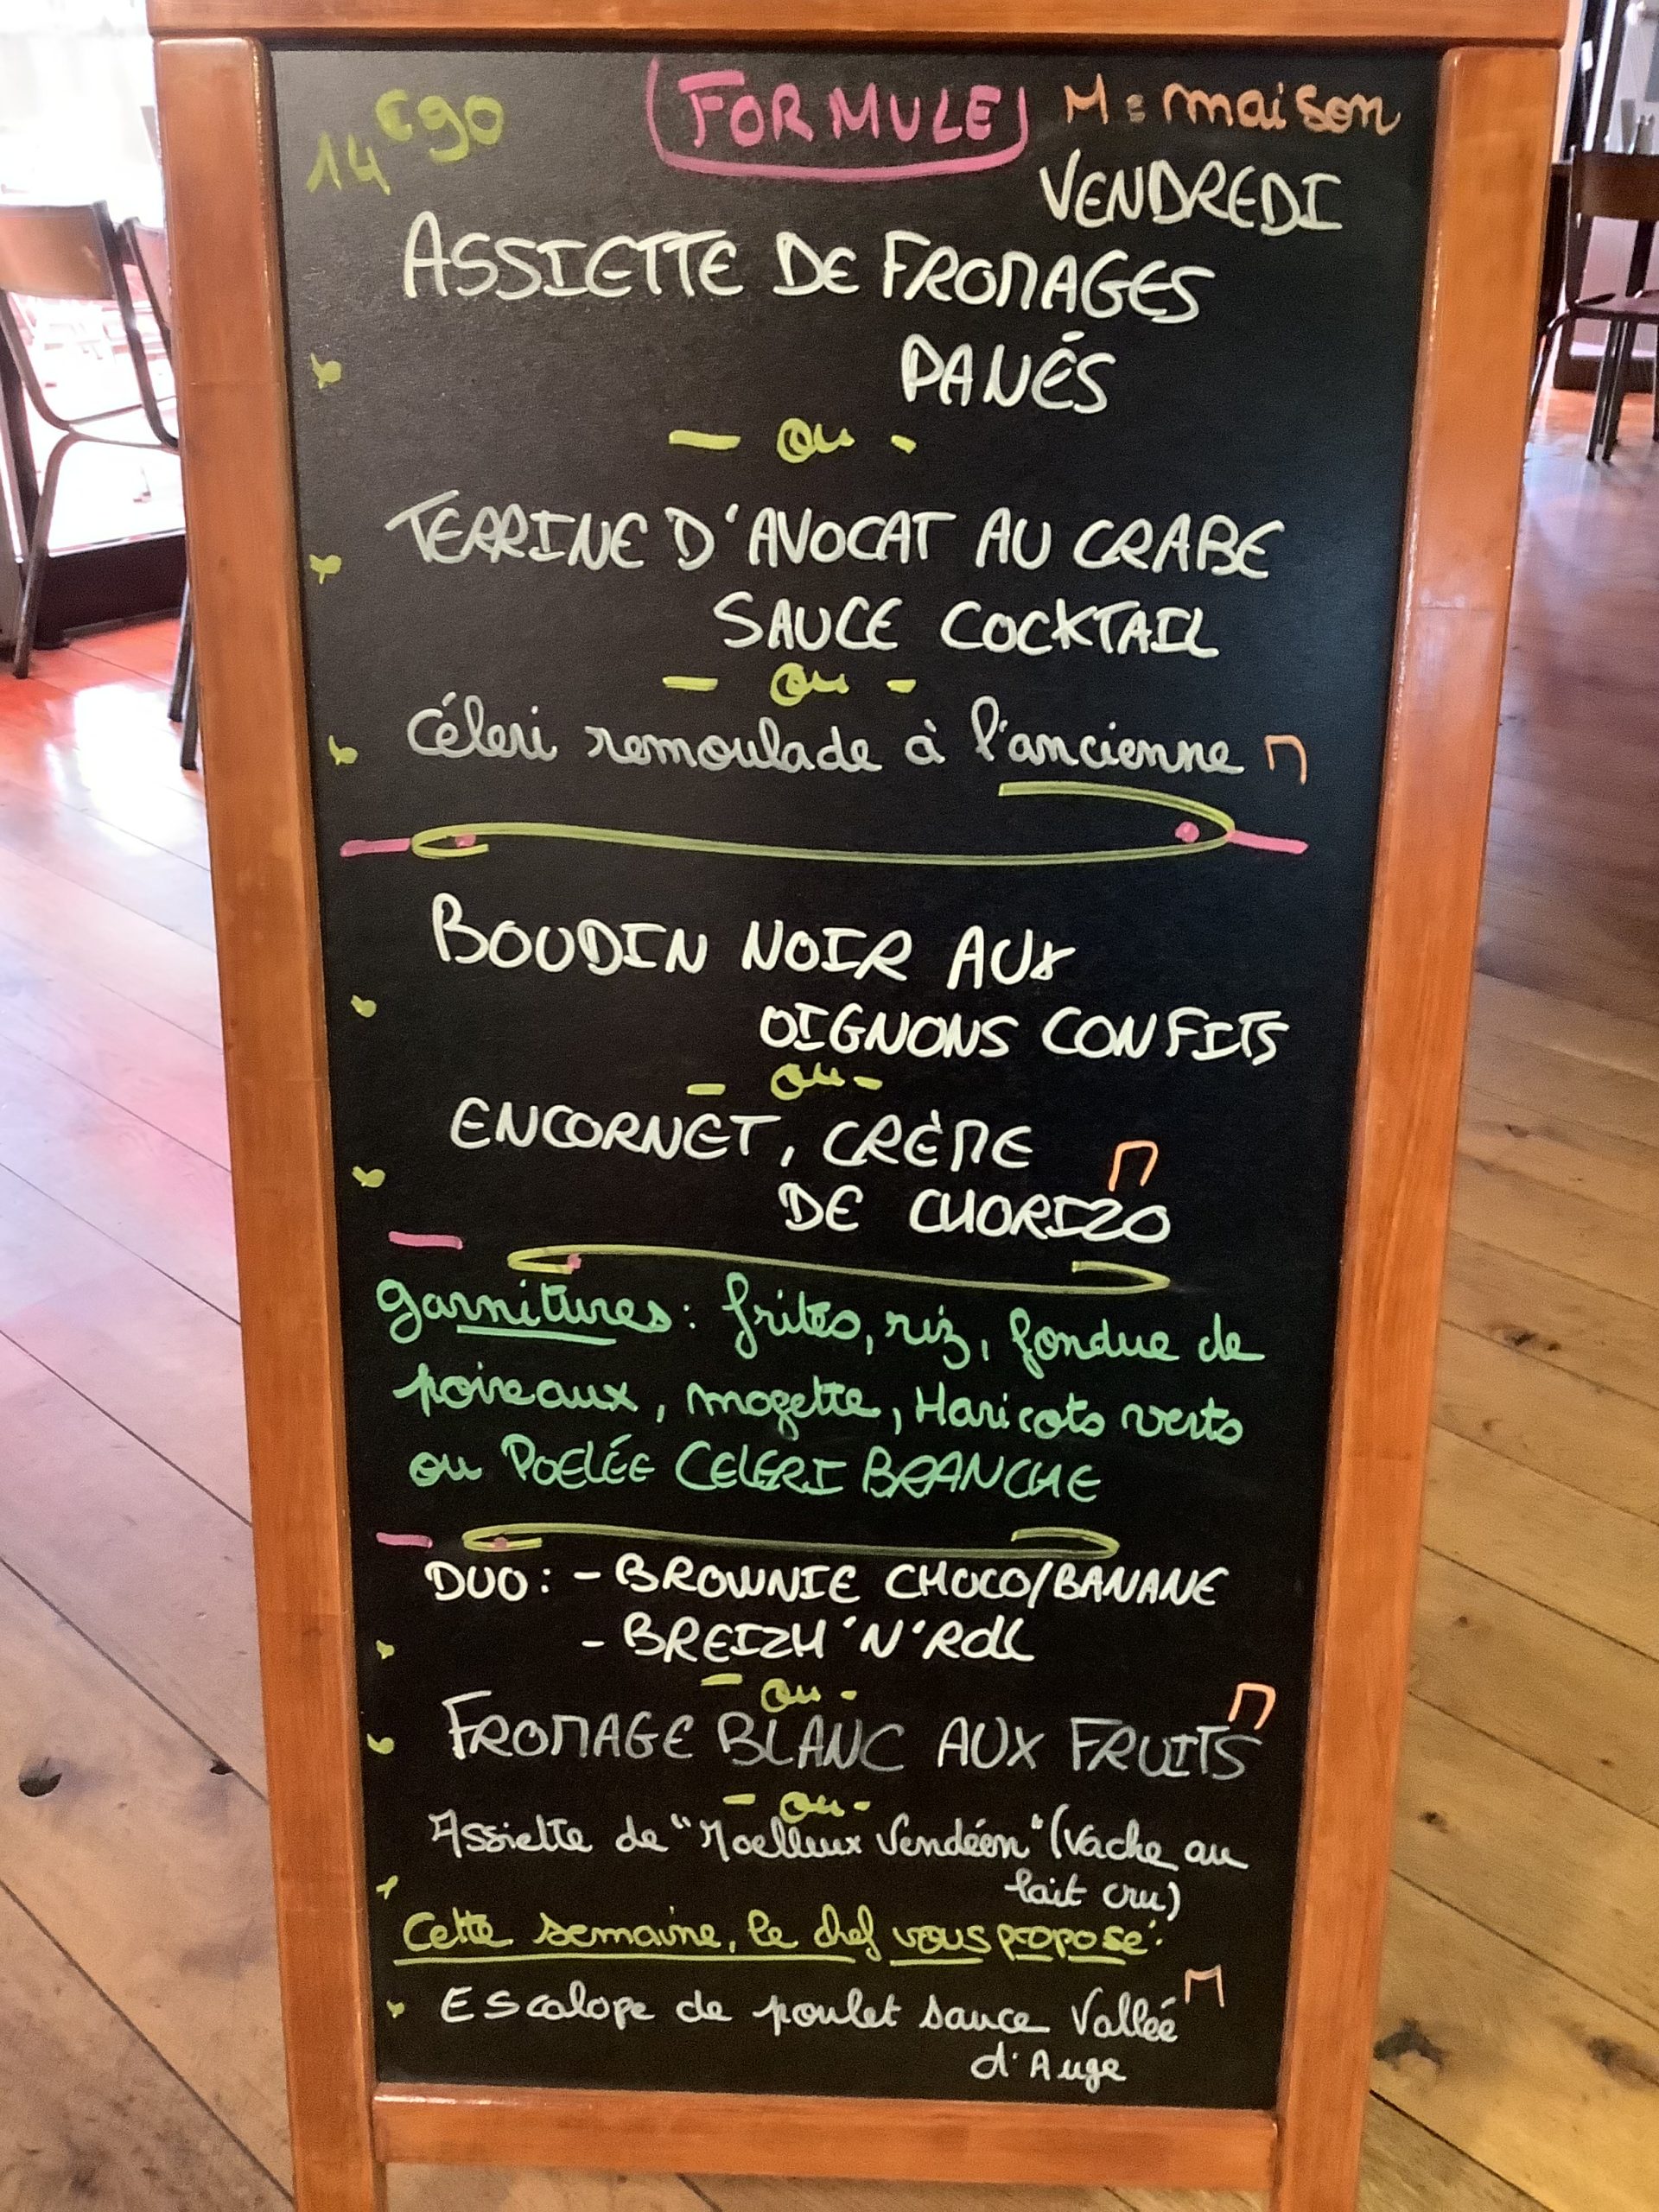 14€90 FORMULE M = maison
VENDREDI
ASSIETTE DE FROMAGES
PANÉS
- ou -
TERRINE D'AVOCAT AU CRABE
SAUCE COCKTAIL
- ou -
Céleri remoulade à l'ancienne M
BOUDIN NOIR AUX
OIGNONS CONFITS
- ou -
ENCORNET, CRÈME M
DE CHORIZO
Garnitures : frites, riz, fondue de
poireaux, mogette, Haricots verts
ou POELÉE CELERI BRANCHE
DUO : - BROWNIE CHOCO/BANANE
- BREIZH'N'ROLL
- ou -
FROMAGE BLANC AUX FRUITS M
- ou -
Assiette de "Moelleux Vendéen" (Vache au
lait cru)
Cette semaine, le chef vous propose :
Escalope de poulet sauce Vallée M
d'Auge